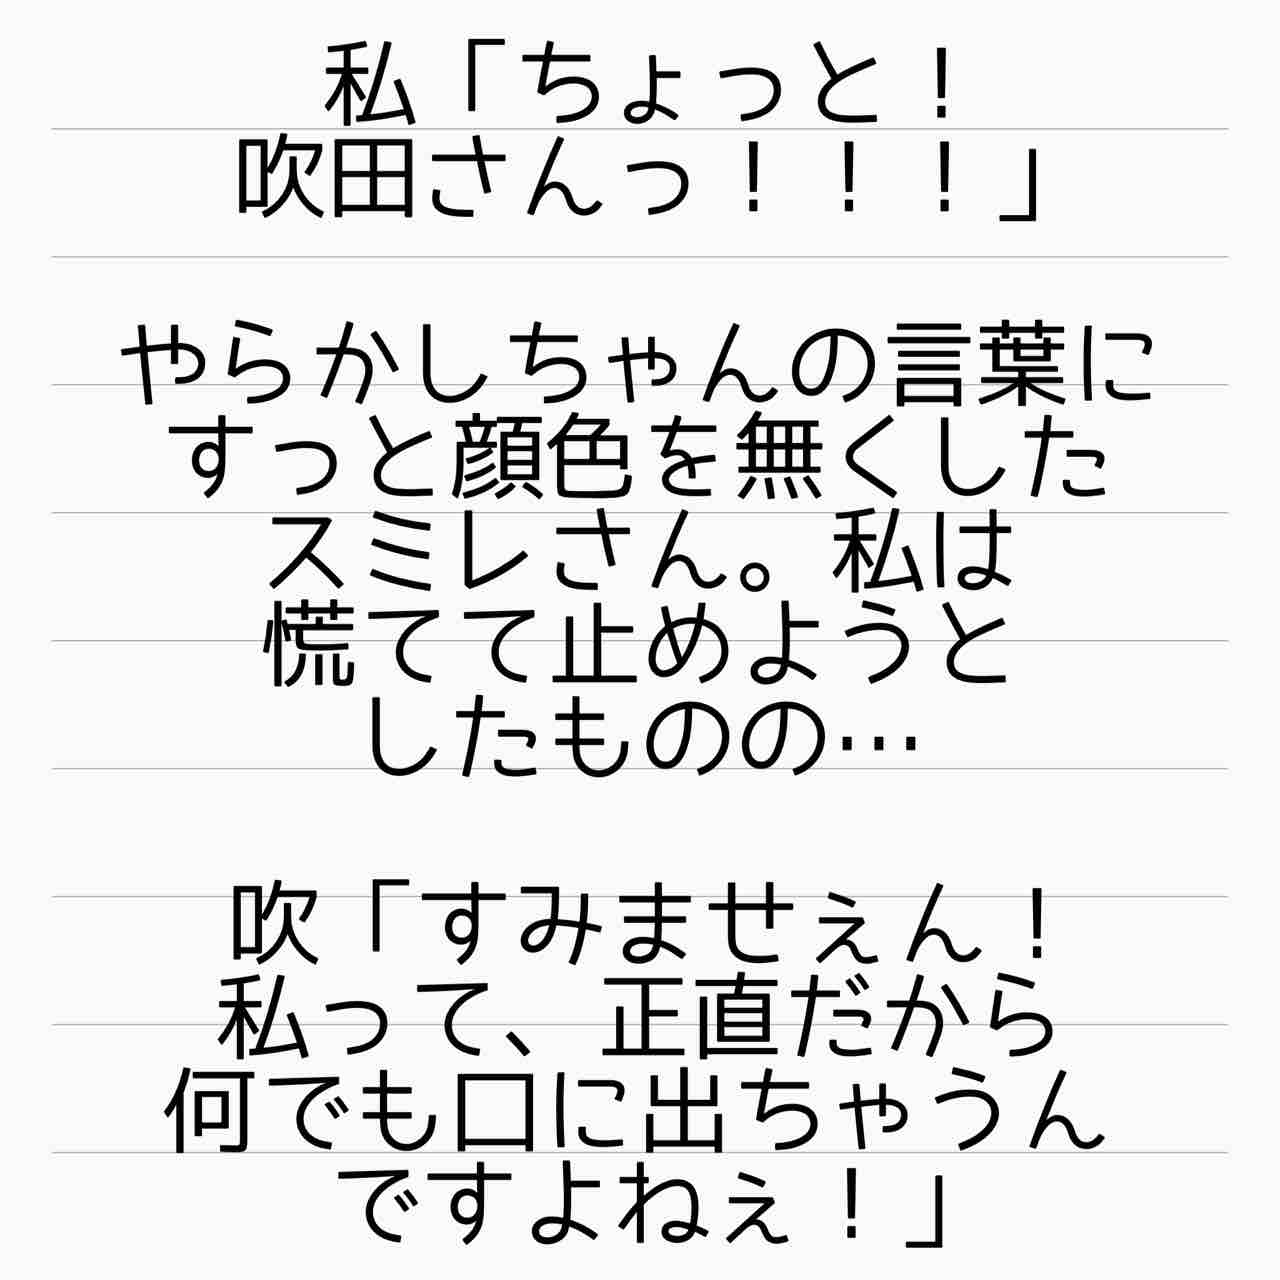 私「ちょっと！
吹田さんっ！！！」
やらかしちゃんの言葉に
すっと顔色を無くした
スミレさん。私は
慌てて止めようと
したものの…
吹「すみませぇん！
私って、正直だから
何でも口に出ちゃうん
ですよねぇ！」